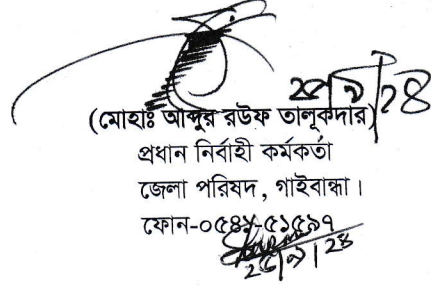 ২৫/৯/২৪
(মোহাঃ আব্দুর রউফ তালুকদার)
প্রধান নির্বাহী কর্মকর্তা
জেলা পরিষদ, গাইবান্ধা।
ফোন-০৫৪১-৫১৫৯৭
২৫/৯/২৪